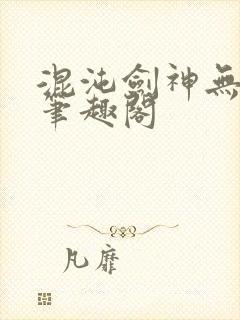 混沌劍神無
筆趣閣
凡靡